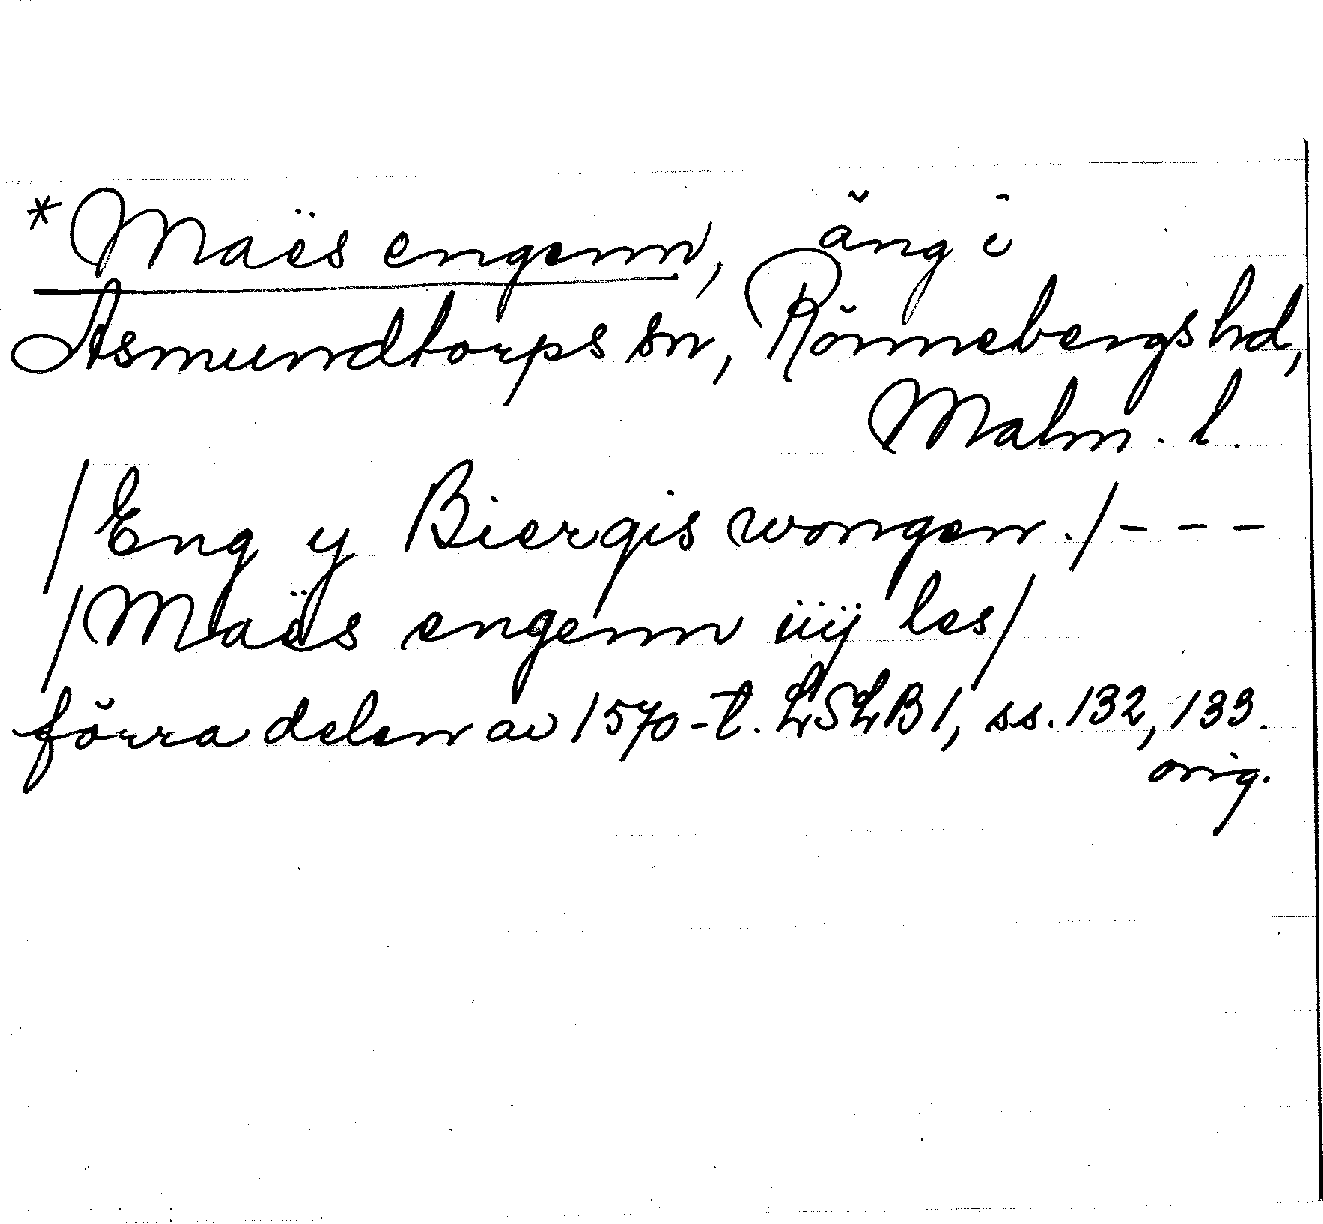 *Maës engenn, äng i
Asmundtorps sn, Rönnebergs hd,
Malm. l.
/Eng y Biergis wongen./ - - -
/Maës engenn iiij les/
förra delen av 1570-t. LSLB 1, ss. 132, 133.
orig.